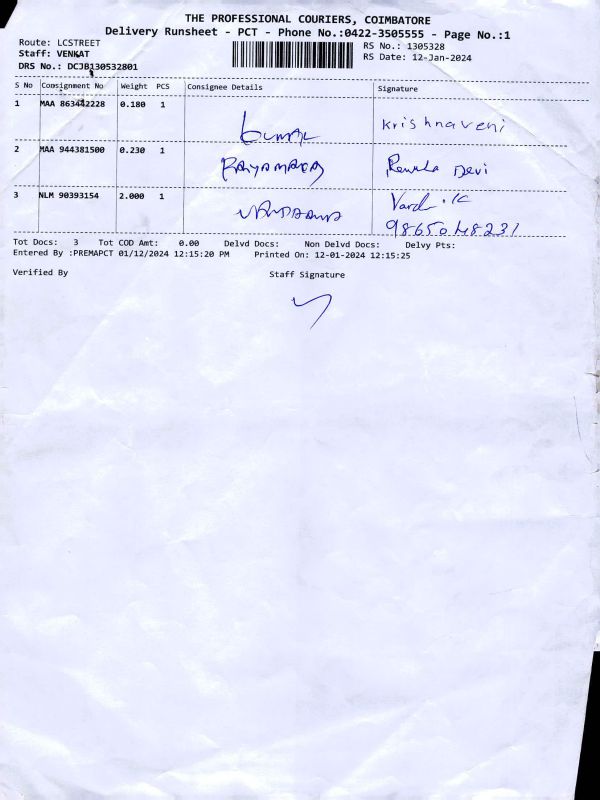 THE PROFESSIONAL COURIERS, COIMBATORE
Delivery Runsheet - PCT - Phone No.:0422-3505555 - Page No.:1
Route: LCSTREET
RS No.: 1305328
Staff: VENKAT
RS Date: 12-Jan-2024
DRS No.: DCJB130532801
S No Consignment No Weight PCS Consignee Details Signature
1 MAA 863442228 0.180 1 Krishnaveni
2 MAA 944381500 0.230 1 Devi
3 NLM 90393154 2.000 1
9865048231
Tot Docs: 3 Tot COD Amt: 0.00 Delvd Docs: Non Delvd Docs: Delvy Pts:
Entered By :PREMAPCT 01/12/2024 12:15:20 PM Printed On: 12-01-2024 12:15:25
Verified By Staff Signature